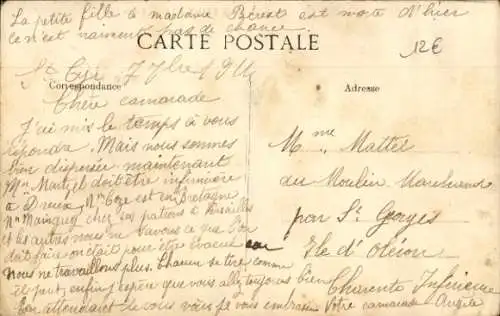 La petite fille à madame Bérest est morte d'hier
ce n'est vraiment pas de chance.
CARTE POSTALE
12€
St Cyr 7 7bre 1914
Correspondance
Adresse
Chère camarade
J'ai mis le temps à vous
répondre. Mais nous sommes
bien dispersée maintenant
Mme doit être infirmière
à Dreux, est en Bretagne
chez ses patrons à Versailles
et les autres nous ne savons ce que
doit faire on était pour être évacué
Nous ne travaillons plus. Chacun se tire comme
il peut, enfin j'espère que vous allez toujours bien
En attendant de vous vous je vous embrasse Votre camarade Angèle
Mme Mattel
du Moulin
par St Georges
Ile d'Oléron
Charente Inférieure